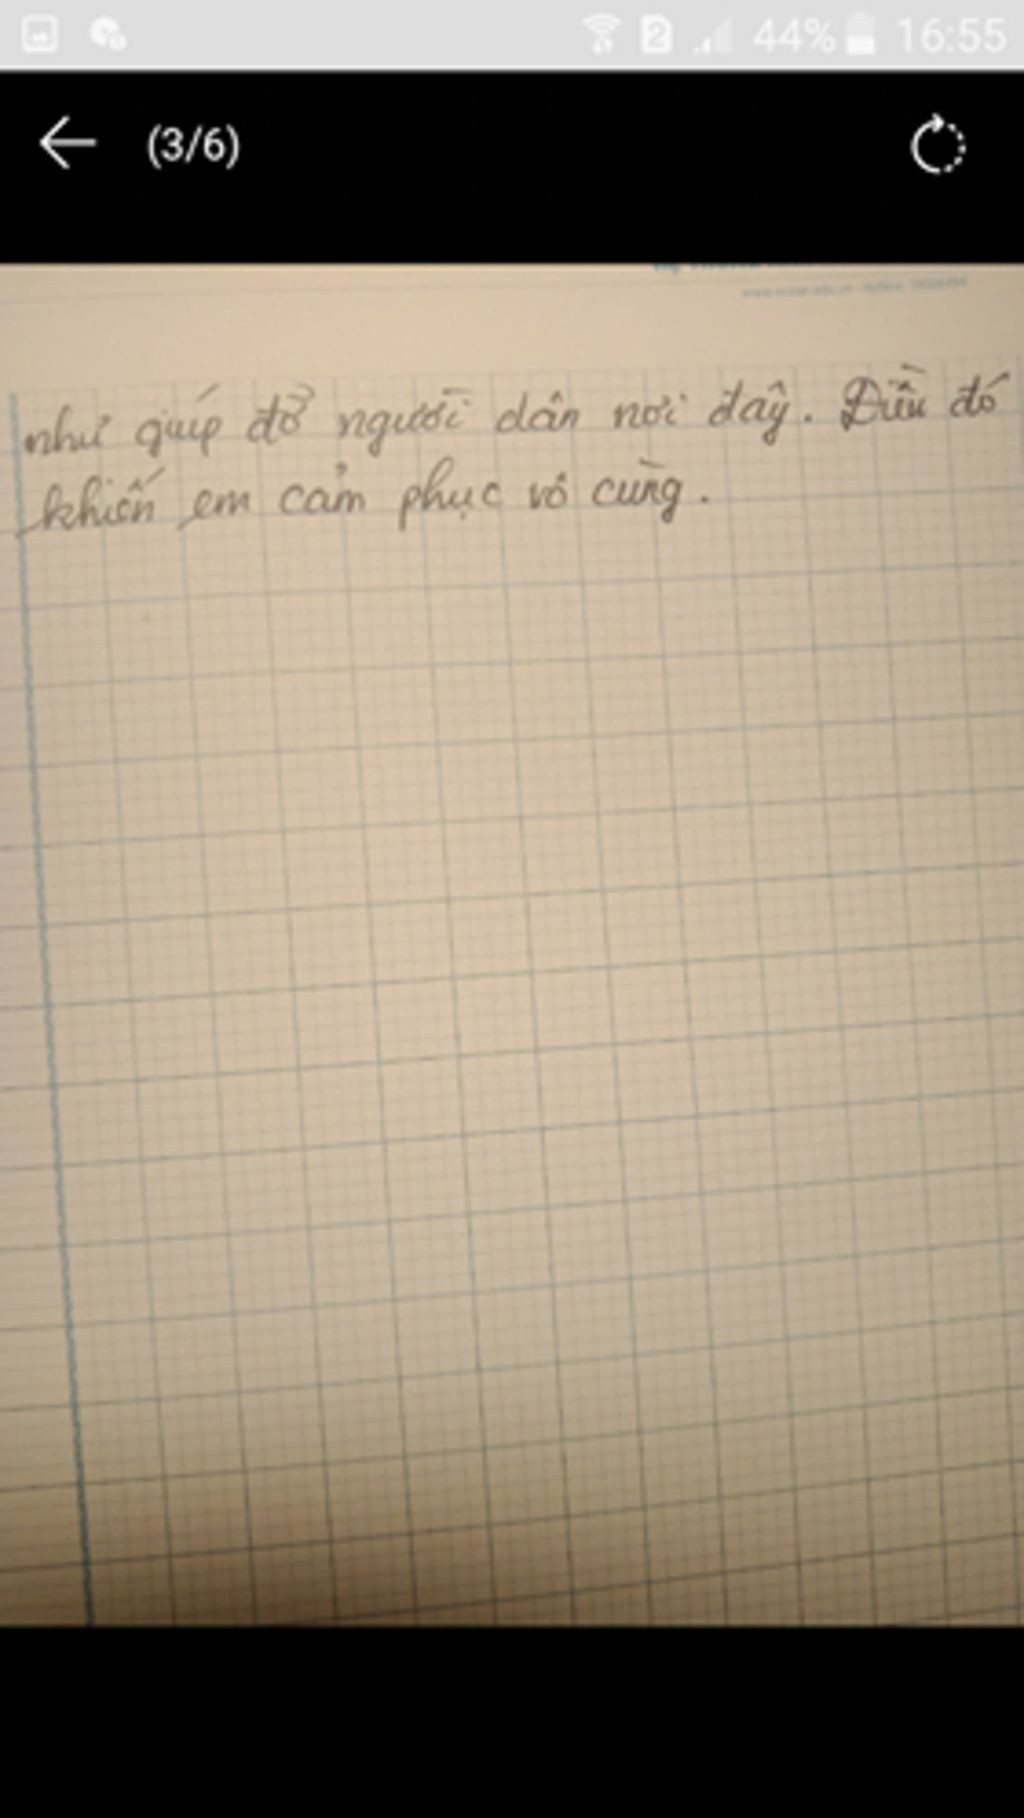 44% 16:55
(3/6)
như giúp đỡ người dân nơi đây. Điều đó
khiến em cảm phục vô cùng.